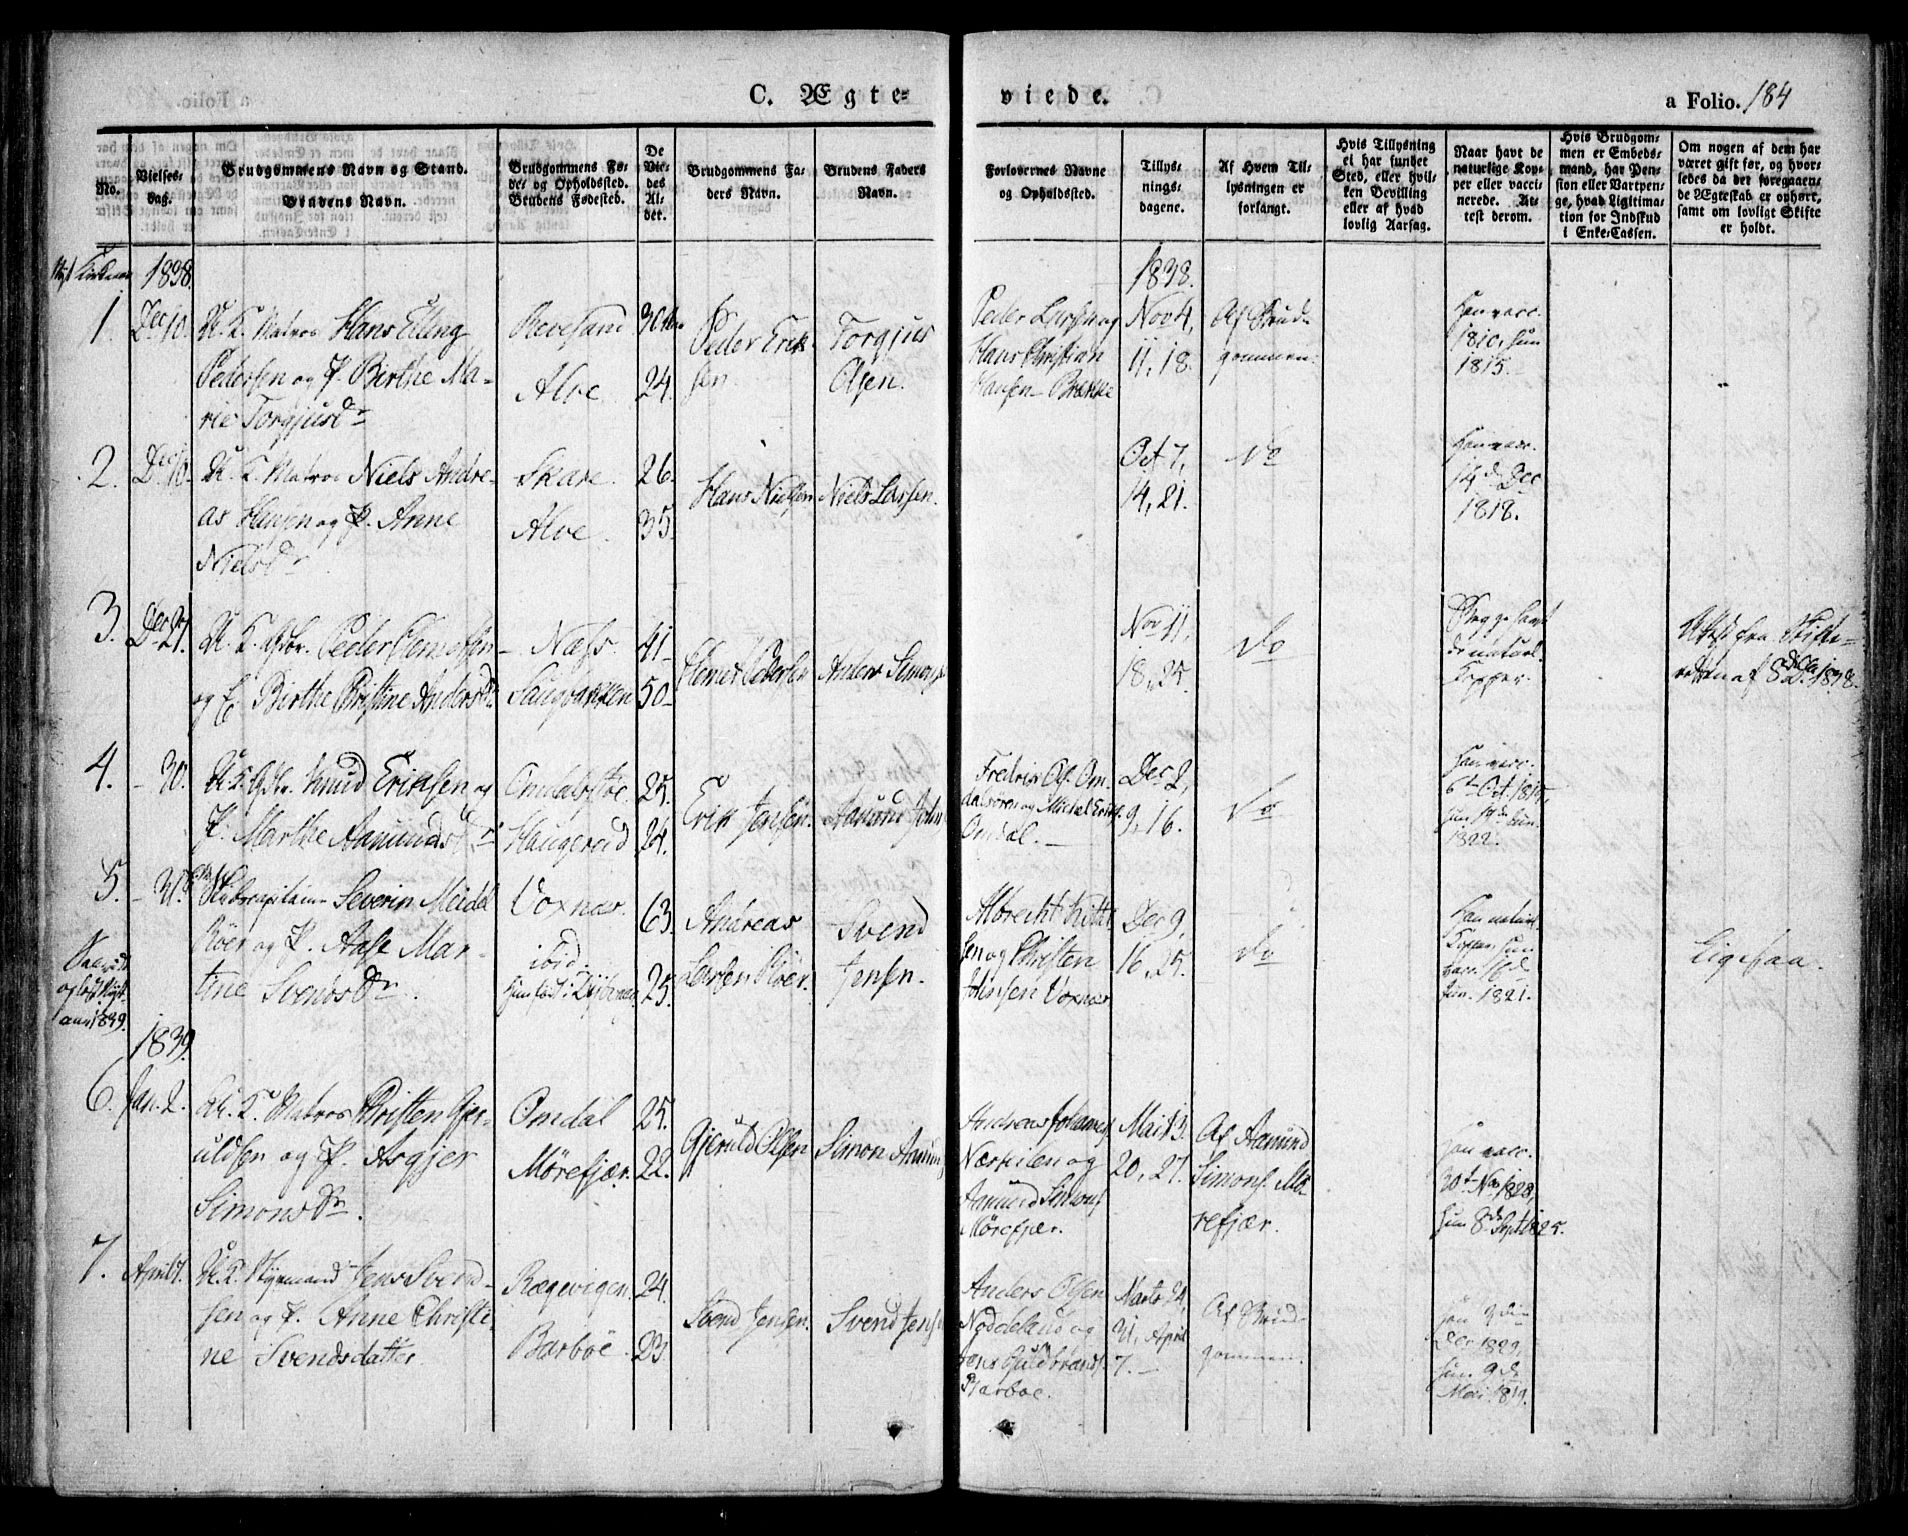 C. Ægte-
viede.
a Folio. 184
No.
Vielses-
dag.
Brudgommens Navn og Stand.
Brudens Navn.
Brudgommens Fø-
de- og Opholdssted.
Brudens Fødested.
De
Vie-
des
Al-
der.
Brudgommens Fa-
ders Navn.
Brudens Faders
Navn.
Forlovernes Navne
og Opholdssted.
Tillys-
nings-
dagene.
Af Hvem Til-
lysningen er
forlangt.
Hvis Tillysning
ei har fundet
Sted, eller hvil-
ken Bevilling
eller af hvad
lovlig Aarsag.
Naar havt de
naturlige Kop-
per eller vacci-
nerede. At-
test derom.
Hvis Brudgom-
men er Embeds-
mand, har Pen-
sion eller Vartpen-
ge, hvad Ligitima-
tion for Indskud
i Enke-Cassen.
Om nogen af dem har
været gift før, og hvor-
ledes da det foregaaen-
de Ægteskab er ophørt,
samt om lovligt Skifte
er holdt.
1838.
1838.
1.
Dec 10.
U. K. Matros Hans Elling
Pedersen og P. Birthe Ma-
rie Torgjusdr
Revesand
Alve
30
24.
Peder Erik-
sen.
Torgjus
Olsen.
Peder Larsen og
Hans Christian
Hansen Brække
Nov 4,
11, 18.
Af Brud-
gommen.
Han vacc.
1810, hun
1815.
2.
Dec 10.
U. K. Matros Niels Andre-
as Hansen og P. Anne
Nielsdr
Skare.
Alve.
26.
35.
Hans Nielsen
Niels Larsen.
Oct 7,
14, 21.
Do
Han vacc.
14d Dec
1818.
3.
Dec 27.
U. K. Peder Clemetsen
og E. Birthe Christine Andersdr
Næss.
Saugbakken
41
50
Clemet Pedersen
Anders Simons.
Nov 11,
18, 25.
Do
Begge havt
de naturl.
Kopper.
Attest fra Skifte-
retten af 8d Dec 1838.
4.
- 30.
U. K. Knud Eriksen og
P. Marthe Aamundsdr
Omdalsøe.
Haugerød
25.
24.
Erik Jensen.
Aamund John
Fredrik Ols. Om-
dalsøren og Michel Eriks.
Omdal.
Dec 2,
9, 16.
Do
Han vacc.
6te Oct. 1815,
hun 19de Jun.
1822.
5.
- 31.
Skibscapitain Severin Meidel
Röer og P. Aase Mar-
tine Svendsdr.
Voxnæs.
ibid.
63.
25.
Andreas
Larsen Röer.
Svend
Jensen.
Albrecht Kittel-
sen og Christen
Johnsen Voxnæs
Dec 9,
16, 25.
Do
Han naturl.
Kopper, hun
vacc.
Jun. 1821.
Ligesaa.
1839.
6.
Jan. 2.
U. K. Matros Christen Gje-
ruldsen og P. Asgjer
Simonsdr.
Omdal
Mörefjær.
25.
22.
Gjeruld Olsen
Simon Aamunds
Andreas Johannes
Næskilen og
Aamund Simons
Mörefjær.
Mai 13.
20, 27.
Af Aamund
Simons. Mö-
refjær.
Han vacc.
30te Nov 1828,
hun 8de Sept 1825.
7.
April 7.
U. K. Styrmand Jens Svend-
sen og P. Anne Christi-
ne Svendsdatter.
Rægevigen.
Barboe.
24.
23.
Svend Jensen.
Svend Jens
Anders Olsen
Nöddelund og
Jens Guldbrands.
Barboe.
Marts 24,
31, April
7.
Af Brud-
gommen.
Han 9de
Dec 1829,
hun 9de
Mai 1819.